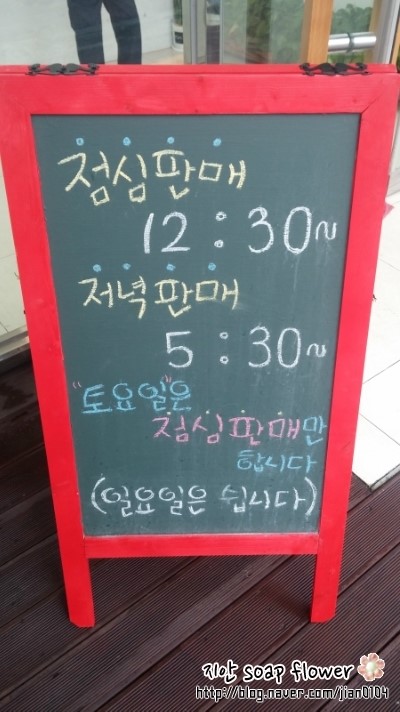 점심판매
12:30~
저녁판매
5:30~
"토요일"은
점심판매만
합니다
(일요일은 쉽니다)
지안 soap flower
http://blog.naver.com/jian0104